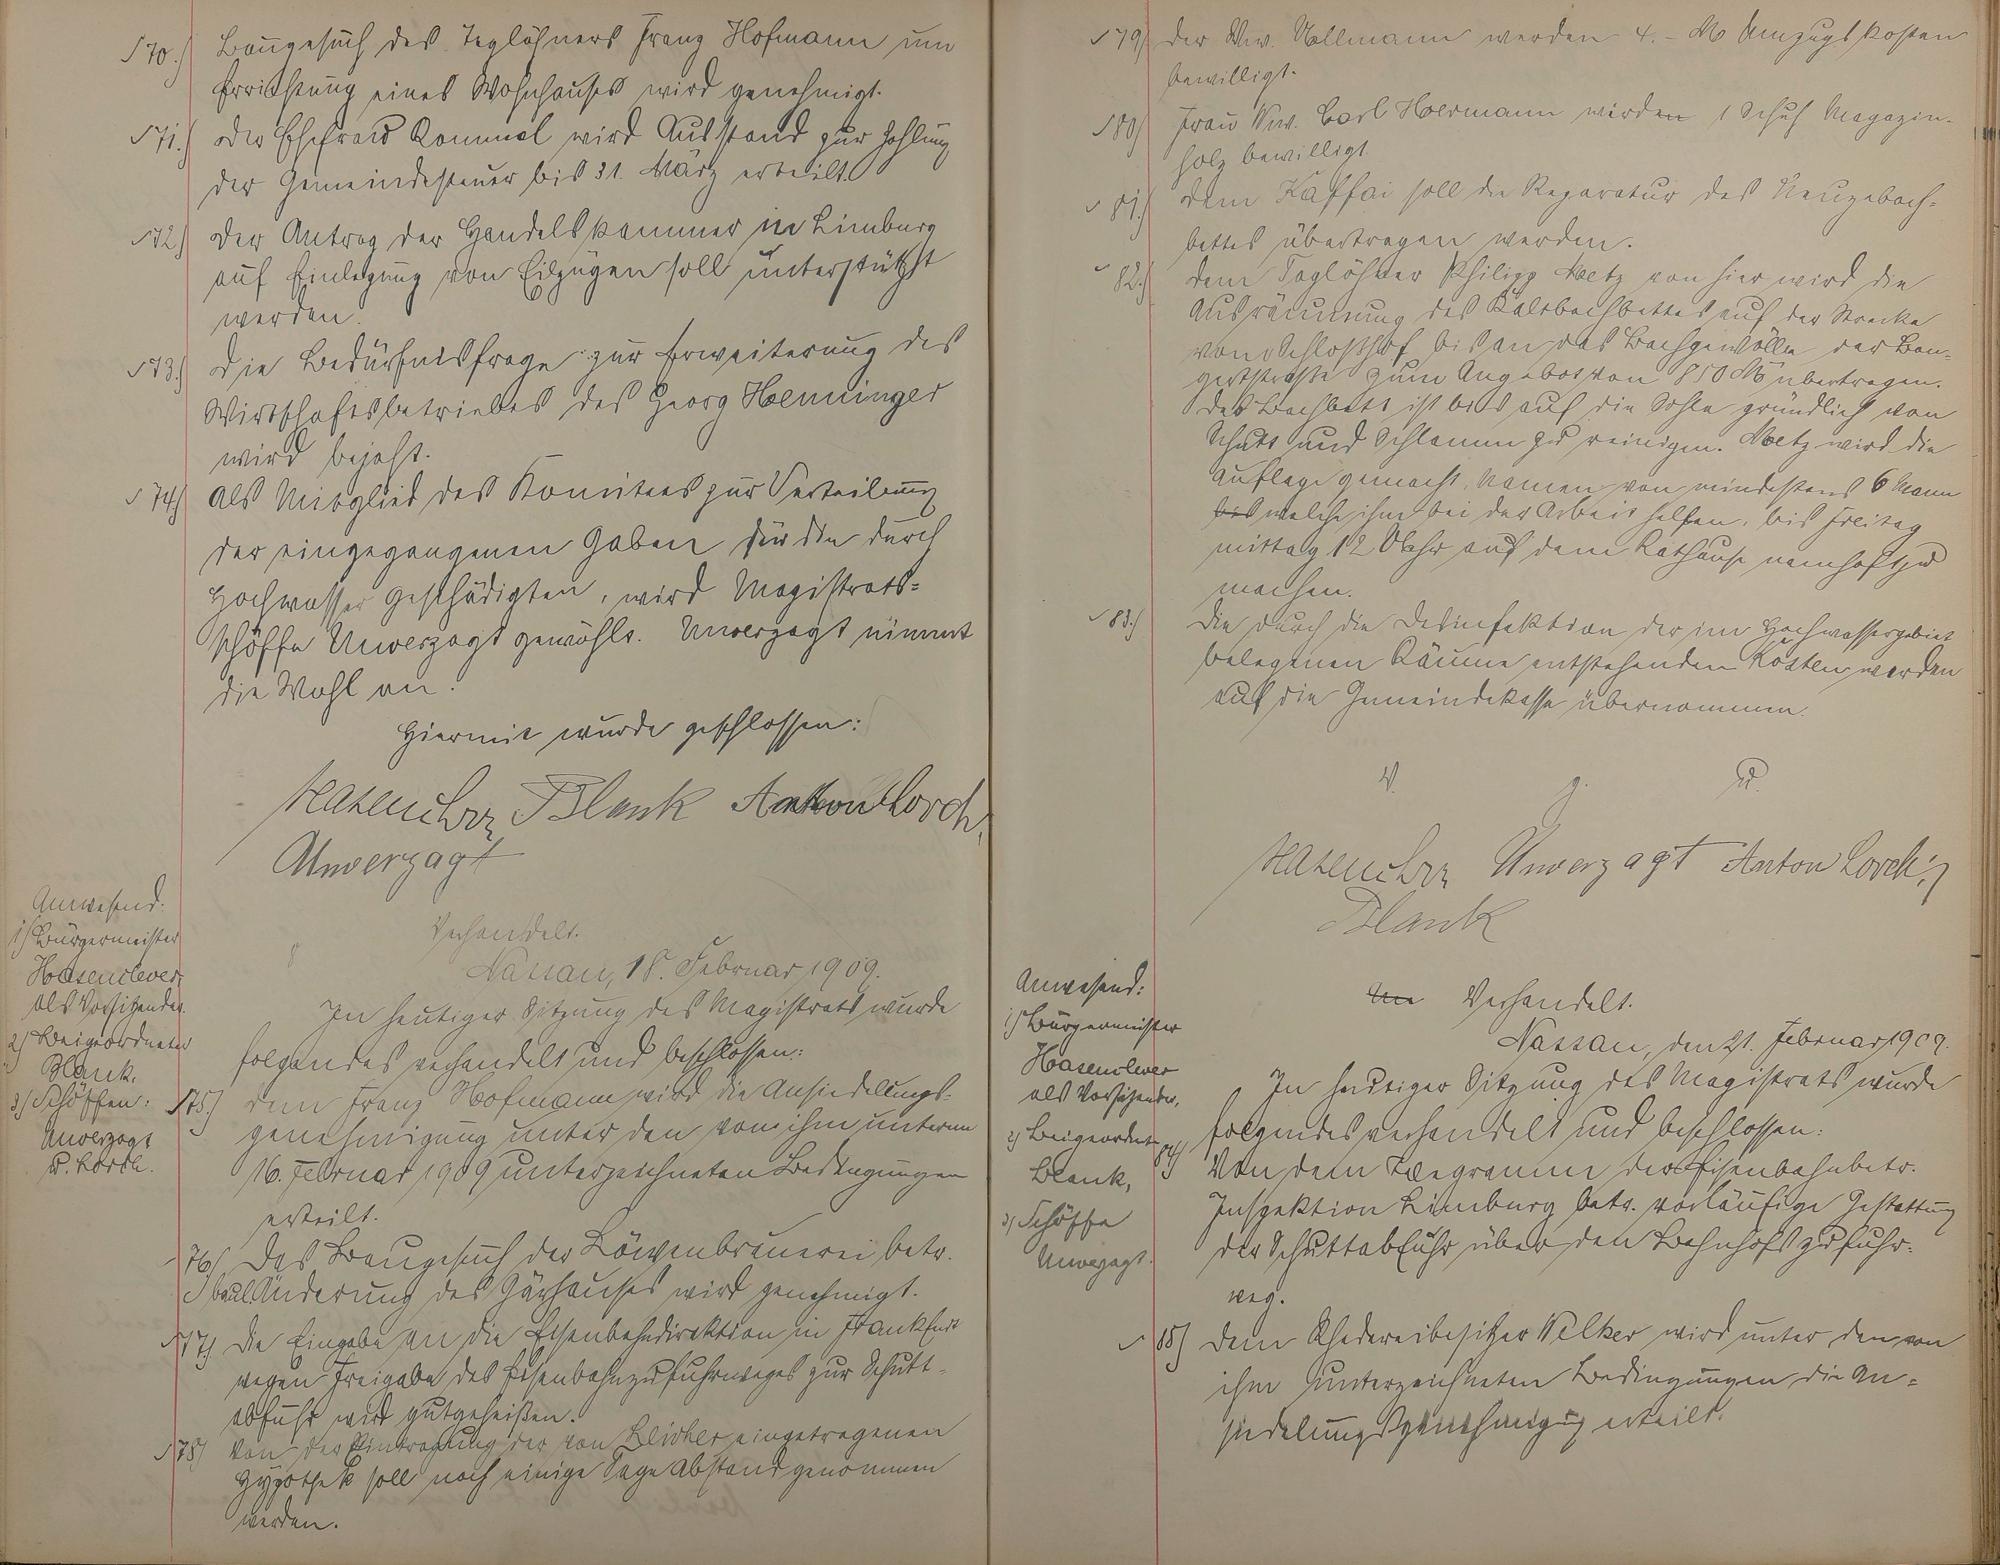 70.) Baugesuch des Taglöhners Franz Hofmann um
Errichtung eines Wohnhauses wird genehmigt.
71.) Der Ehefrau Rommel wird Ausstand zur Zahlung
der Gemeindesteuer bis 31. März erteilt.
72.) Der Antrag der Handelskammer in Limburg
auf Einlegung von Eilzügen soll unterstützt
werden.
73.) Die Bedürfnisfrage zur Erweiterung des
Wirtschaftsbetriebes des Georg Henninger
wird bejaht.
74.) Als Mitglied des Komitees zur Verteilung
der eingegangenen Gaben für die durch
Hochwasser Geschädigten, wird Magistrats-
schöffe Unverzagt gewählt. Unverzagt nimmt
die Wahl an.
Hiermit wurde geschlossen:
Hasenclever Blank Anton Lorch
Unverzagt
Anwesend:
1) Bürgermeister
Hasenclever
als Vorsitzender.
2) Beigeordneter
Blank,
3) Schöffen:
Unverzagt
u. Lorch.
Verhandelt.
Nassau, 18. Februar 1909.
In heutiger Sitzung des Magistrats wurde
folgendes verhandelt und beschlossen:
75.) Dem Franz Hofmann wird die Ansiedelungs-
genehmigung unter den von ihm unterm
16. Februar 1909 unterzeichneten Bedingungen
erteilt.
76) Das Baugesuch der Löwenbrauerei betr.
baul. Änderung des Gärhauses wird genehmigt.
77.) Die Eingabe an die Eisenbahndirektion in Frankfurt
wegen Freigabe des Eisenbahnzufuhrweges zur Schutt-
abfuhr wird gutgeheißen.
78) Von der Eintragung der von Bleicher eingetragenen
Hypothek soll noch einige Tage Abstand genommen
werden.
79) Der Ww. Vollmann werden 4.- M Umzugskosten
bewilligt.
80) Frau Ww. Carl Hoermann werden 1 Schuh Magazin-
holz bewilligt.
81.) Dem Kaffai soll die Reparatur des Neuzebach-
bettes übertragen werden.
82.) Dem Taglöhner Philipp Metz von hier wird die
Ausräumung des Kaltbachbettes auf der Strecke
vom Schloßhof bis an das Bachgewölbe der Bon-
gertstraße zum Angebot von 850 M übertragen.
Das Bachbett ist bis auf die Sohle gründlich von
Schutt und Schlamm zu reinigen. Metz wird die
Auflage gemacht, Namen von mindestens 6 Mann
bis welche ihm bei der Arbeit helfen, bis Freitag
mittag 12 Uhr auf dem Rathause namhaft zu
machen.
83.) Die durch die Desinfektion der im Hochwassergebiet
belegenen Räume entstehenden Kosten werden
auf die Gemeindekasse übernommen.
V. g. U.
Hasenclever Unverzagt Anton Lorch
Blank
Anwesend:
1) Bürgermeister
Hasenclever
als Vorsitzender,
2) Beigeordnet.
Blank,
3) Schöffe
Unverzagt.
Verhandelt.
Nassau, den 21. Februar 1909.
In heutiger Sitzung des Magistrats wurde
folgendes verhandelt und beschlossen:
84) Von dem Telegramm der Eisenbahnbetr.
Inspektion Limburg betr. vorläufige Gestattung
der Schuttabfuhr über den Bahnhofszufuhr-
weg.
85) Dem Rhedereibesitzer Welker wird unter den von
ihm unterzeichneten Bedingungen die An-
siedelungsgenehmigung erteilt.